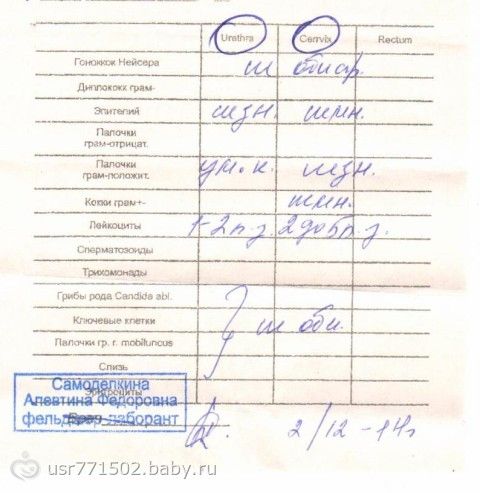 Urethra Cervix Rectum
Гонококк Нейсера не обнар.
Диплококк грам-
Эпителий
Палочки
грам-отрицат.
Палочки
грам-положит. ум. к.
Кокки грам+-
Лейкоциты 1-2 п.з. 2 до 5 п.з.
Сперматозоиды
Трихомонады
Грибы рода Candida abl.
Ключевые клетки не обн.
Палочки гр. г. mobiluncus
Слизь
Эритроциты
Самоделкина
Алевтина Федоровна
фельдшер-лаборант
2/12-14г
usr771502.baby.ru